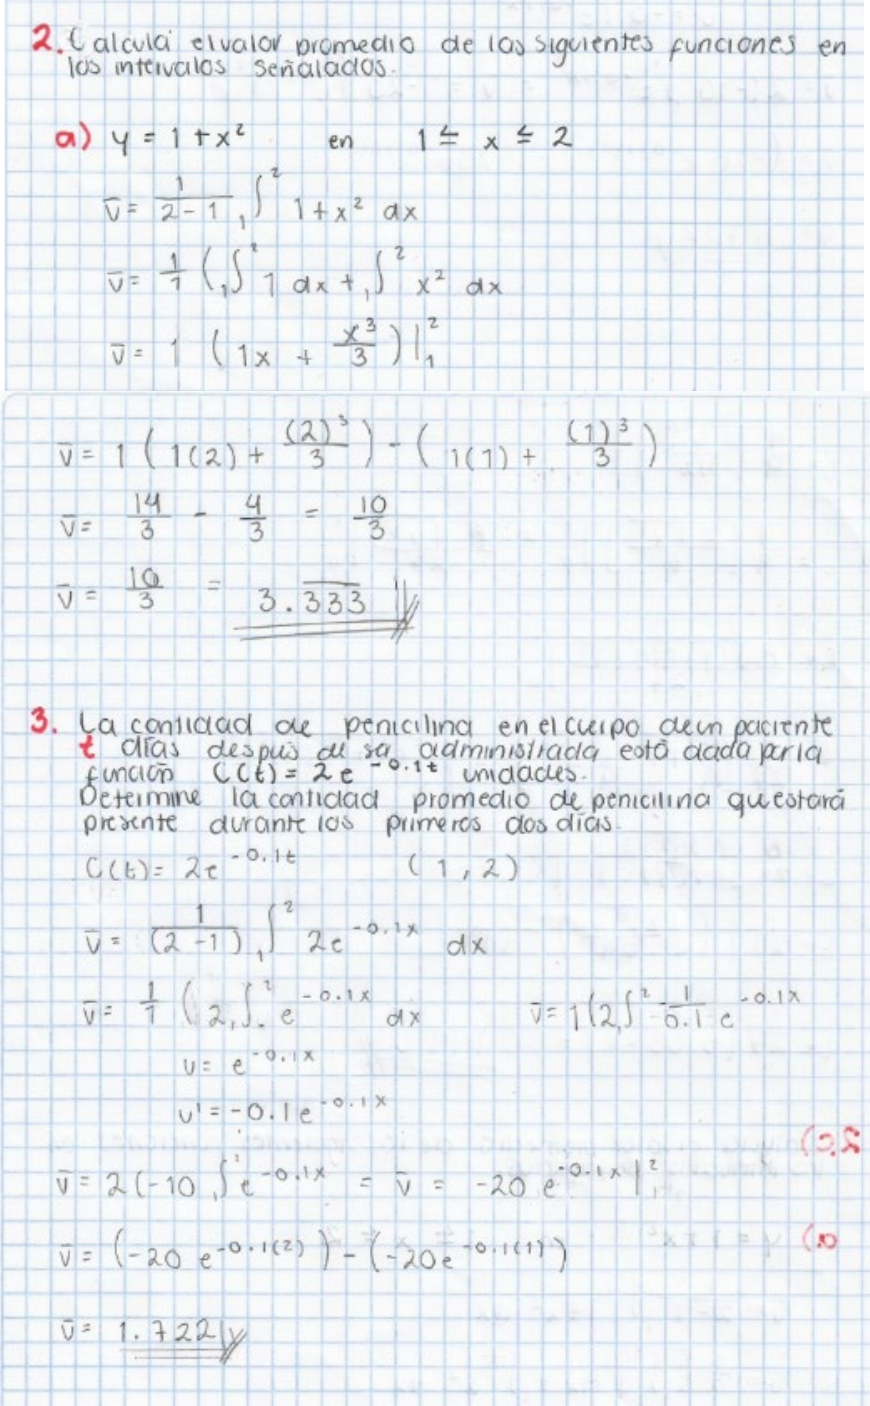 2. Calcula el valor promedio de las siguientes funciones en
los intervalos señalados.
a) y = 1 + x² en 1 ≤ x ≤ 2
v̄ = 1/(2-1) ₁∫² 1 + x² dx
v̄ = 1/1 (₁∫² 1 dx + ₁∫² x² dx
v̄ = 1 (1x + x³/3)|₁²
v̄ = 1 (1(2) + (2)³/3) - (1(1) + (1)³/3)
v̄ = 14/3 - 4/3 = 10/3
v̄ = 10/3 = 3.333
3. La cantidad de penicilina en el cuerpo de un paciente
t días después de sa administrada está dada por la
función C(t) = 2e^-0.1t unidades.
Determine la cantidad promedio de penicilina qu estará
presente durante los primeros dos días.
C(t) = 2e^-0.1t (1, 2)
v̄ = 1/(2-1) ₁∫² 2e^-0.1x dx
v̄ = 1/1 (2 ₁∫² e^-0.1x dx v̄ = 1(2 ₁∫² -1/0.1 e^-0.1x
u = e^-0.1x
u' = -0.1e^-0.1x
v̄ = 2(-10 ₁∫² e^-0.1x = v̄ = -20 e^-0.1x|₁²
v̄ = (-20 e^-0.1(2)) - (-20e^-0.1(1))
v̄ = 1.722